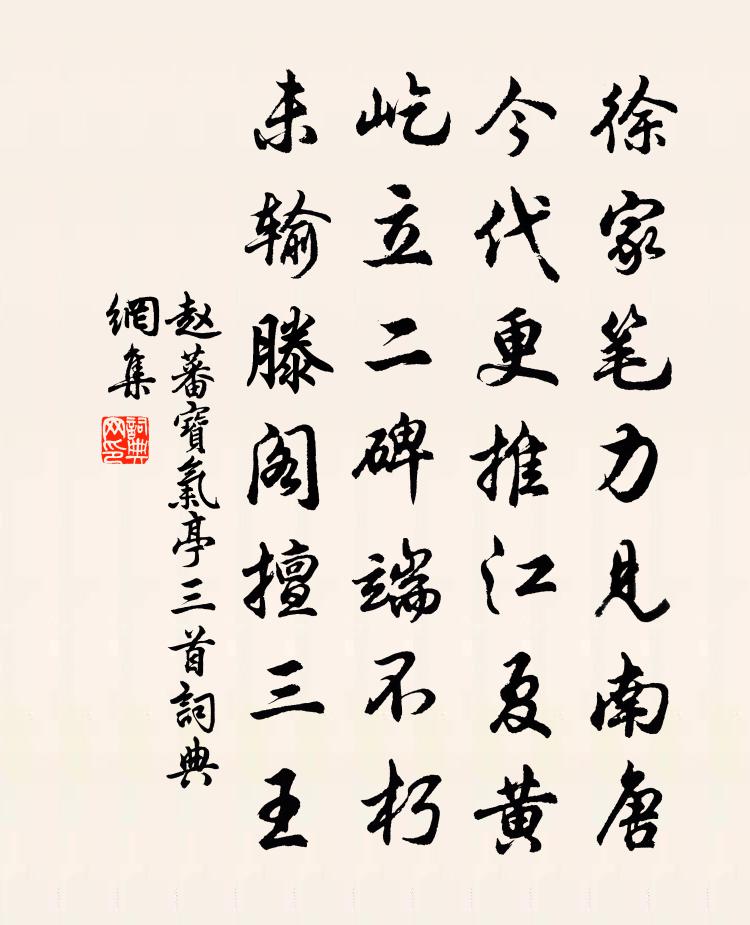 徐家笔力见南唐
今代更推江夏黄
屹立二碑端不朽
未输滕阁擅三王
赵蕃寶氣亭三首詞典
網集
詞典
网印